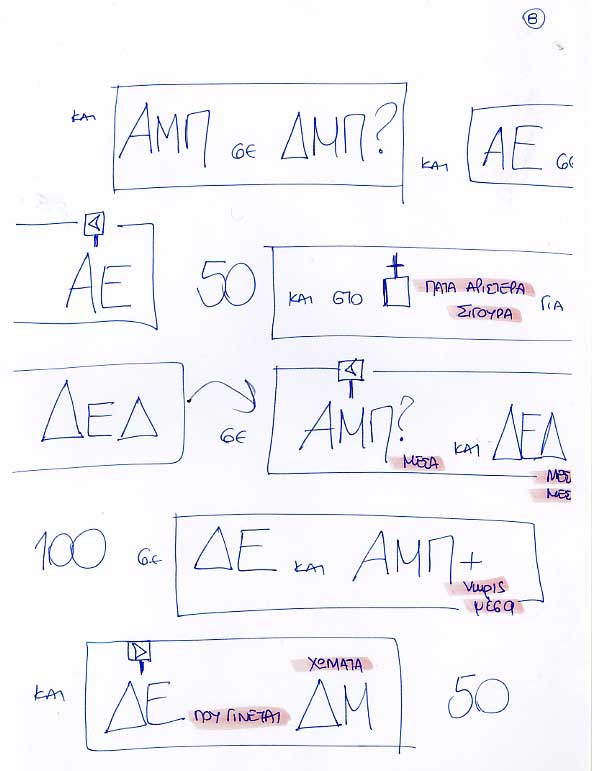 8
και ΑΜΠ σε ΔΜΠ? και ΑΕ σε
ΑΕ 50 και στο ΠΑΤΑ ΑΡΙΣΤΕΡΑ
ΣΙΓΟΥΡΑ ΓΙΑ
ΔΕΔ σε ΑΜΠ? ΜΕΣΑ και ΔΕΔ
ΜΕΣ
ΜΕΣ
100 σε ΔΕ και ΑΜΠ+
χωρίς
μέσα
ΧΩΜΑΤΑ
και ΔΕ ΠΟΥ ΓΙΝΕΤΑΙ ΔΜ 50